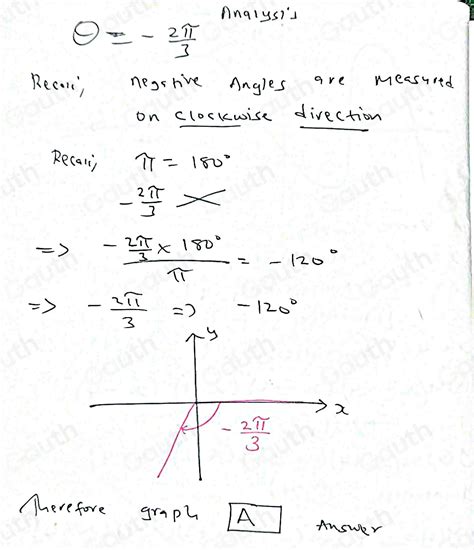 Analysis
θ = - 2π/3
Recall; negative Angles are measured
on clockwise direction
Recall; π = 180°
- 2π/3
=> (- 2π/3 × 180°)/π = - 120°
=> - 2π/3 => - 120°
y
x
- 2π/3
Therefore graph A Answer
Gauth